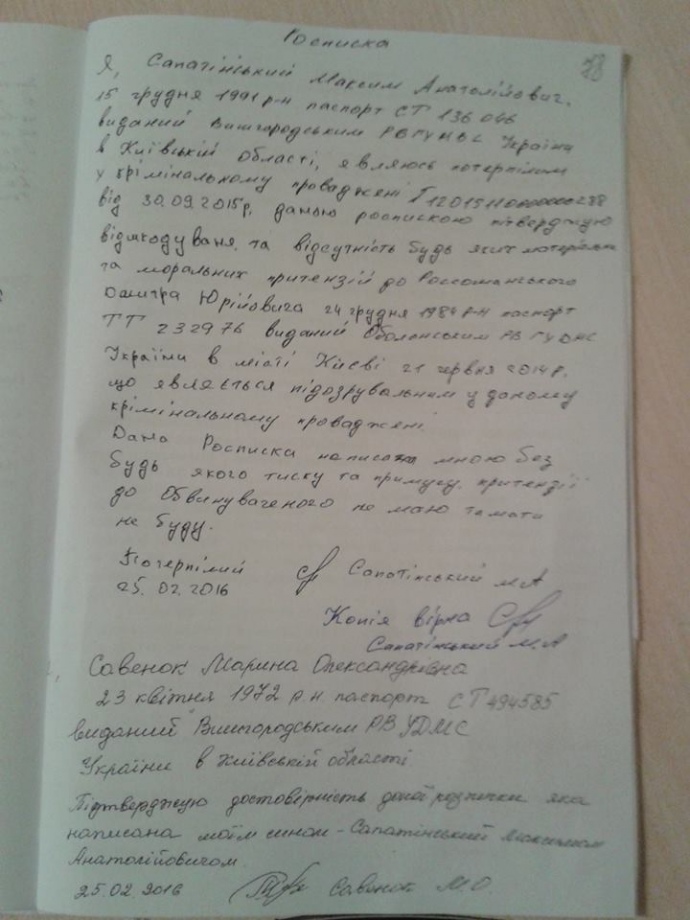 Росписка
28
Я, Сапатінський Максим Анатолійович,
15 грудня 1991 р-н паспорт СТ 136046
виданий Вишгородським РВГУМВС України
в Київській області, являюсь потерпілим
у крімінальному проваджені
від 30.09.2015р, даною роспискою підтверджую
відшкодуваня та відсутність будь яких матеріальн
та моральних притензій до
Дмитра Юрійовича 24 грудня 1984 р-н паспорт
ТТ 232976 виданий Оболонським РВ ГУДМС
України в місті Києві 21 червня 2014р.
що являється підозрувальним у даному
крімінальному проваджені.
Дана Росписка написана мною без
будь якого тиску та примусу. притензії
до Обвинуваченого не маю та мати
не буду.
Потерпілий Сапатінський М.А
25.02.2016
Копія вірна
Сапатінський М.А
Савенок Марина Олександрівна
23 квітня 1972 р.н. паспорт СТ 494585
виданий Вишгородським РВ УДМС
України в Київській області
Підтверджую достовірність даної розписки яка
написана моїм сином - Сапатінський Максимом
Анатолійовичом
25.02.2016 Савенок М.О.